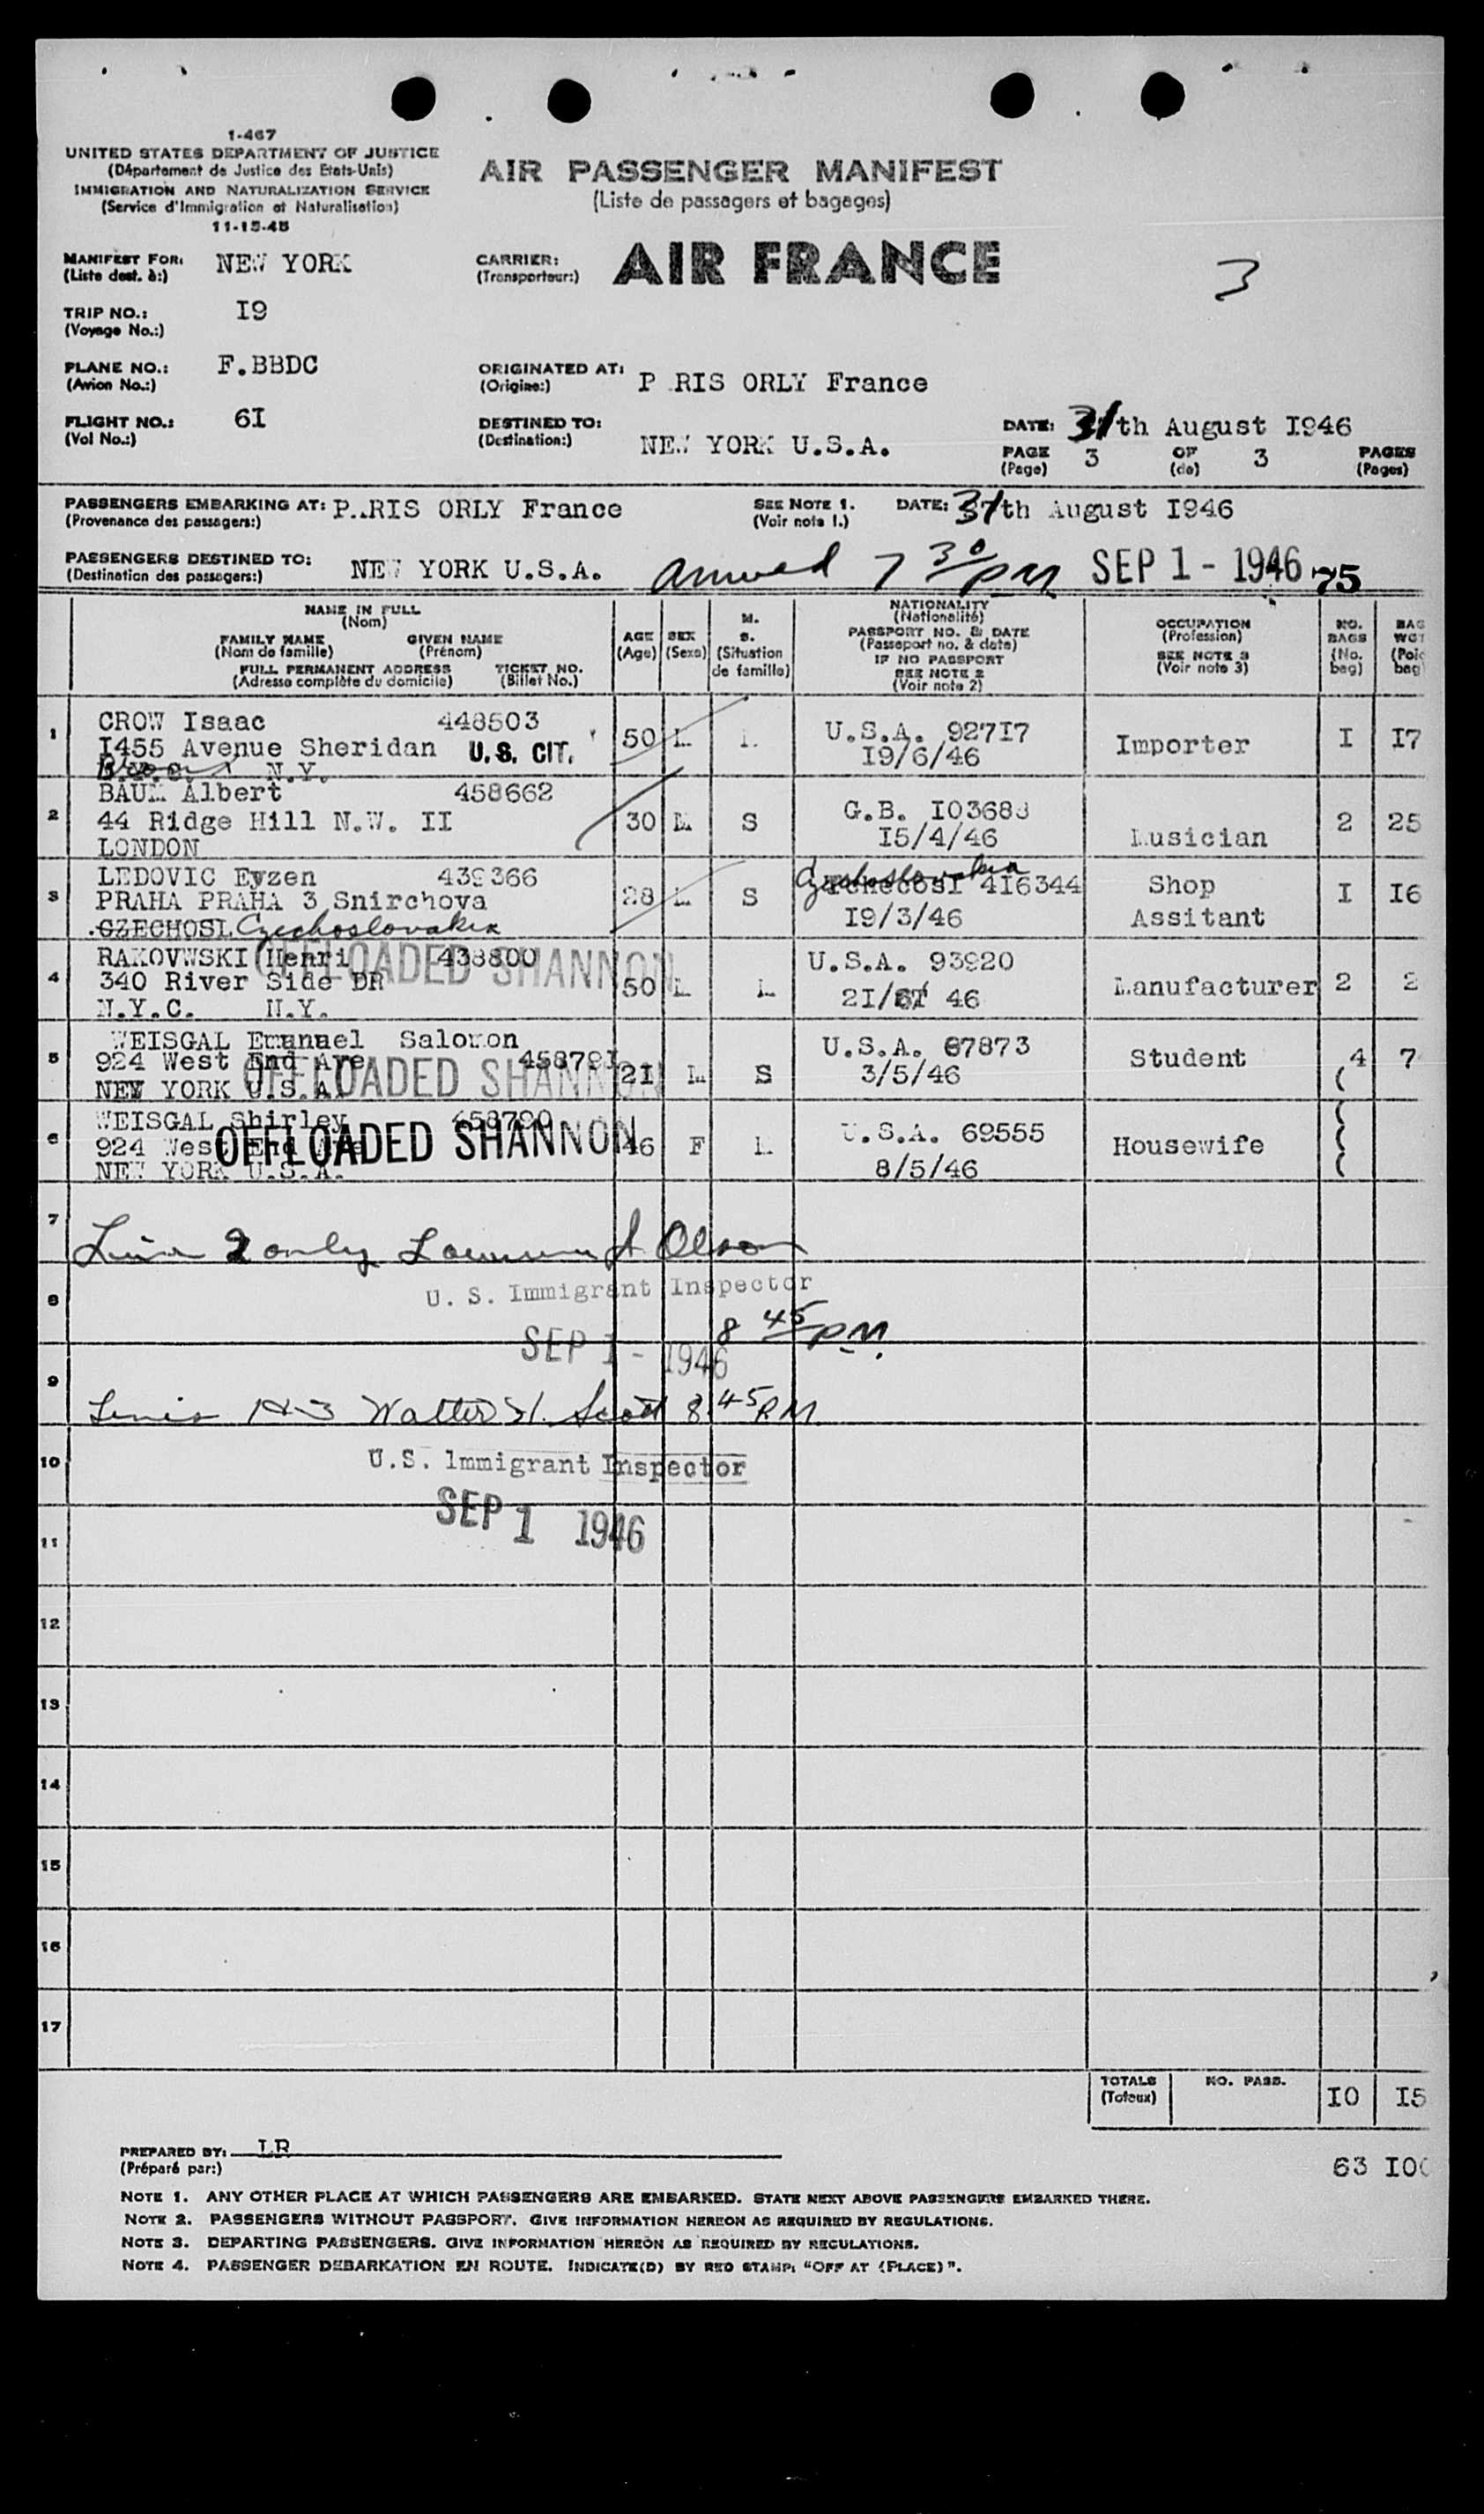 1-467
UNITED STATES DEPARTMENT OF JUSTICE
(Département de Justice des Etats-Unis)
IMMIGRATION AND NATURALIZATION SERVICE
(Service d'Immigration et Naturalisation)
11-15-45
AIR PASSENGER MANIFEST
(Liste de passagers et bagages)
MANIFEST FOR: NEW YORK
(Liste dest. à:)
CARRIER: AIR FRANCE
(Transporteur:)
3
TRIP NO.: I9
(Voyage No.:)
PLANE NO.: F.BBDC
(Avion No.:)
ORIGINATED AT: P RIS ORLY France
(Origine:)
FLIGHT NO.: 6I
(Vol No.:)
DESTINED TO: NEW YORK U.S.A.
(Destination:)
DATE: 31th August I946
PAGE 3 OF 3 PAGES
(Page) (de) (Pages)
PASSENGERS EMBARKING AT: P..RIS ORLY France SEE NOTE 1. DATE: 31th August I946
(Provenance des passagers:) (Voir nota 1.)
PASSENGERS DESTINED TO: NEW YORK U.S.A. arrived 7 30 PM SEP 1 - 1946 75
(Destination des passagers:)
NAME IN FULL
(Nom)
FAMILY NAME GIVEN NAME
(Nom de famille) (Prénom)
FULL PERMANENT ADDRESS TICKET NO.
(Adresse complète du domicile) (Billet No.)
AGE
(Age)
SEX
(Sexe)
M.
S.
(Situation
de famille)
NATIONALITY
(Nationalité)
PASSPORT NO. & DATE
(Passeport no. & date)
IF NO PASSPORT
SEE NOTE 2
(Voir note 2)
OCCUPATION
(Profession)
SEE NOTE 3
(Voir note 3)
NO.
BAGS
(No.
bag)
BAG
WGT
(Poid
bag
1 CROW Isaac 448503 50 M M U.S.A. 92717 Importer I I7
I455 Avenue Sheridan U.S. CIT. I9/6/46
Bronx N.Y.
2 BAUM Albert 458662 30 M S G.B. I03688 Musician 2 25
44 Ridge Hill N.W. II I5/4/46
LONDON
3 LEDOVIC Evzen 439366 28 M S Czechoslovakia 4I6344 Shop I I6
PRAHA PRAHA 3 Snirchova I9/3/46 Assitant
CZECHOSL Czechoslovakia
4 RAKOVWSKI Henri 438800 50 M M U.S.A. 93920 Manufacturer 2 2
340 River Side DR 46
N.Y.C. N.Y.
OFFLOADED SHANNON
5 WEISGAL Emanuel Salomon 2I M S U.S.A. 67873 Student 4 7
924 West End Ave 45879I 3/5/46
NEW YORK U.S.A.
OFFLOADED SHANNON
6 WEISGAL Shirley 458790 46 F M U.S.A. 69555 Housewife
924 West End Ave 8/5/46
NEW YORK U.S.A.
OFFLOADED SHANNON
7
Line 2 only J. Olson
8
U. S. Immigrant Inspector
8 45 PM.
SEP 1 - 1946
9
Lines 1 & 3 Walter H. Scott 8.45 PM
10
U.S. Immigrant Inspector
SEP 1 1946
11
12
13
14
15
16
17
TOTALS NO. PASS. I0 I5
(Totaux)
PREPARED BY: LR
(Préparé par:)
63 I00
NOTE 1. ANY OTHER PLACE AT WHICH PASSENGERS ARE EMBARKED. STATE NEXT ABOVE PASSENGERS EMBARKED THERE.
NOTE 2. PASSENGERS WITHOUT PASSPORT. GIVE INFORMATION HEREON AS REQUIRED BY REGULATIONS.
NOTE 3. DEPARTING PASSENGERS. GIVE INFORMATION HEREON AS REQUIRED BY REGULATIONS.
NOTE 4. PASSENGER DEBARKATION EN ROUTE. INDICATE(D) BY RED STAMP: "OFF AT (PLACE)".